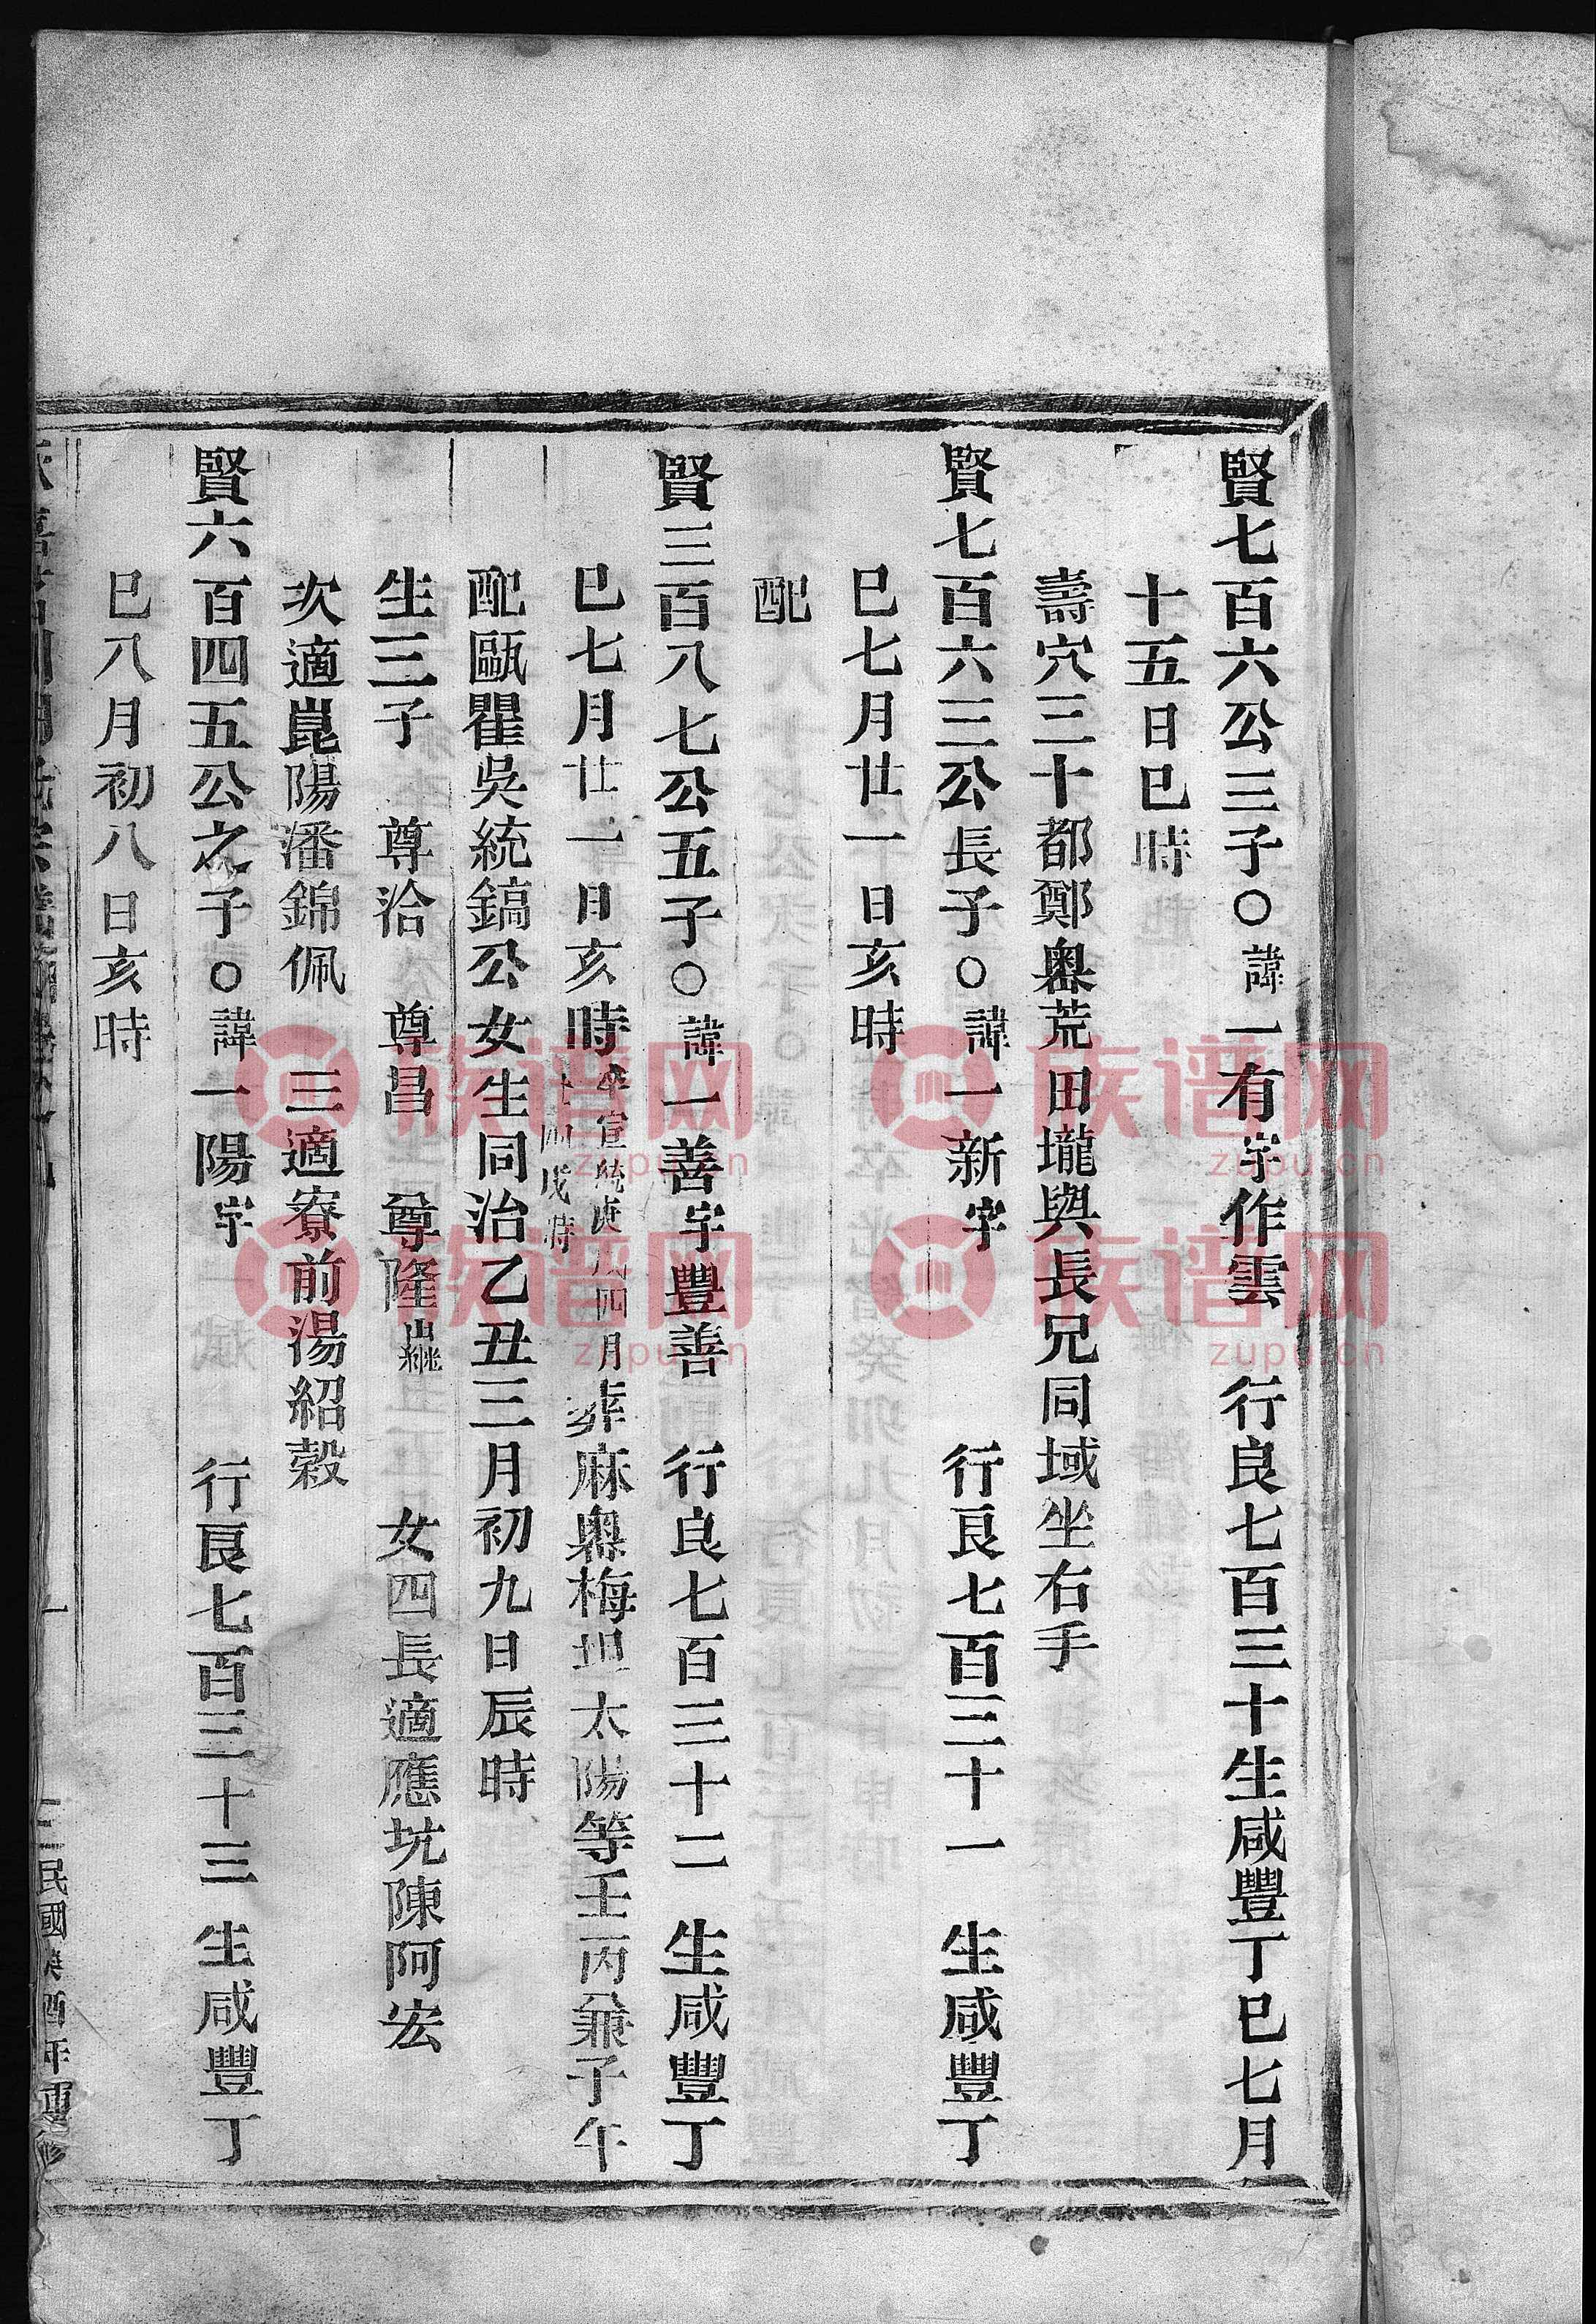 賢七百六公三子○諱一有字作雲　行良七百三十生咸豐丁巳七月
十五日巳時
壽穴三十都鄭嶴荒田壠與長兄同域坐右手
賢七百六三公長子○諱一新字　行良七百三十一　生咸豐丁
巳七月廿一日亥時
配
賢三百八七公五子○諱一善字豐善　行良七百三十二　生咸豐丁
巳七月廿一日亥時卒宣統庚戌四月十四戌時葬麻嶴梅坦太陽等壬丙兼子午
配甌瞿吳統鎬公女生同治乙丑三月初九日辰時
生三子　尊洽　尊昌　尊隆出繼　女四長適應坑陳阿宏
次適崑陽潘錦佩　三適寮前湯紹榖
賢六百四五公之子○諱一陽字　行良七百三十三　生咸豐丁
巳八月初八日亥時
民國癸酉年重修
族谱网
zupu.cn
族谱网
zupu.cn
族谱网
zupu.cn
族谱网
zupu.cn